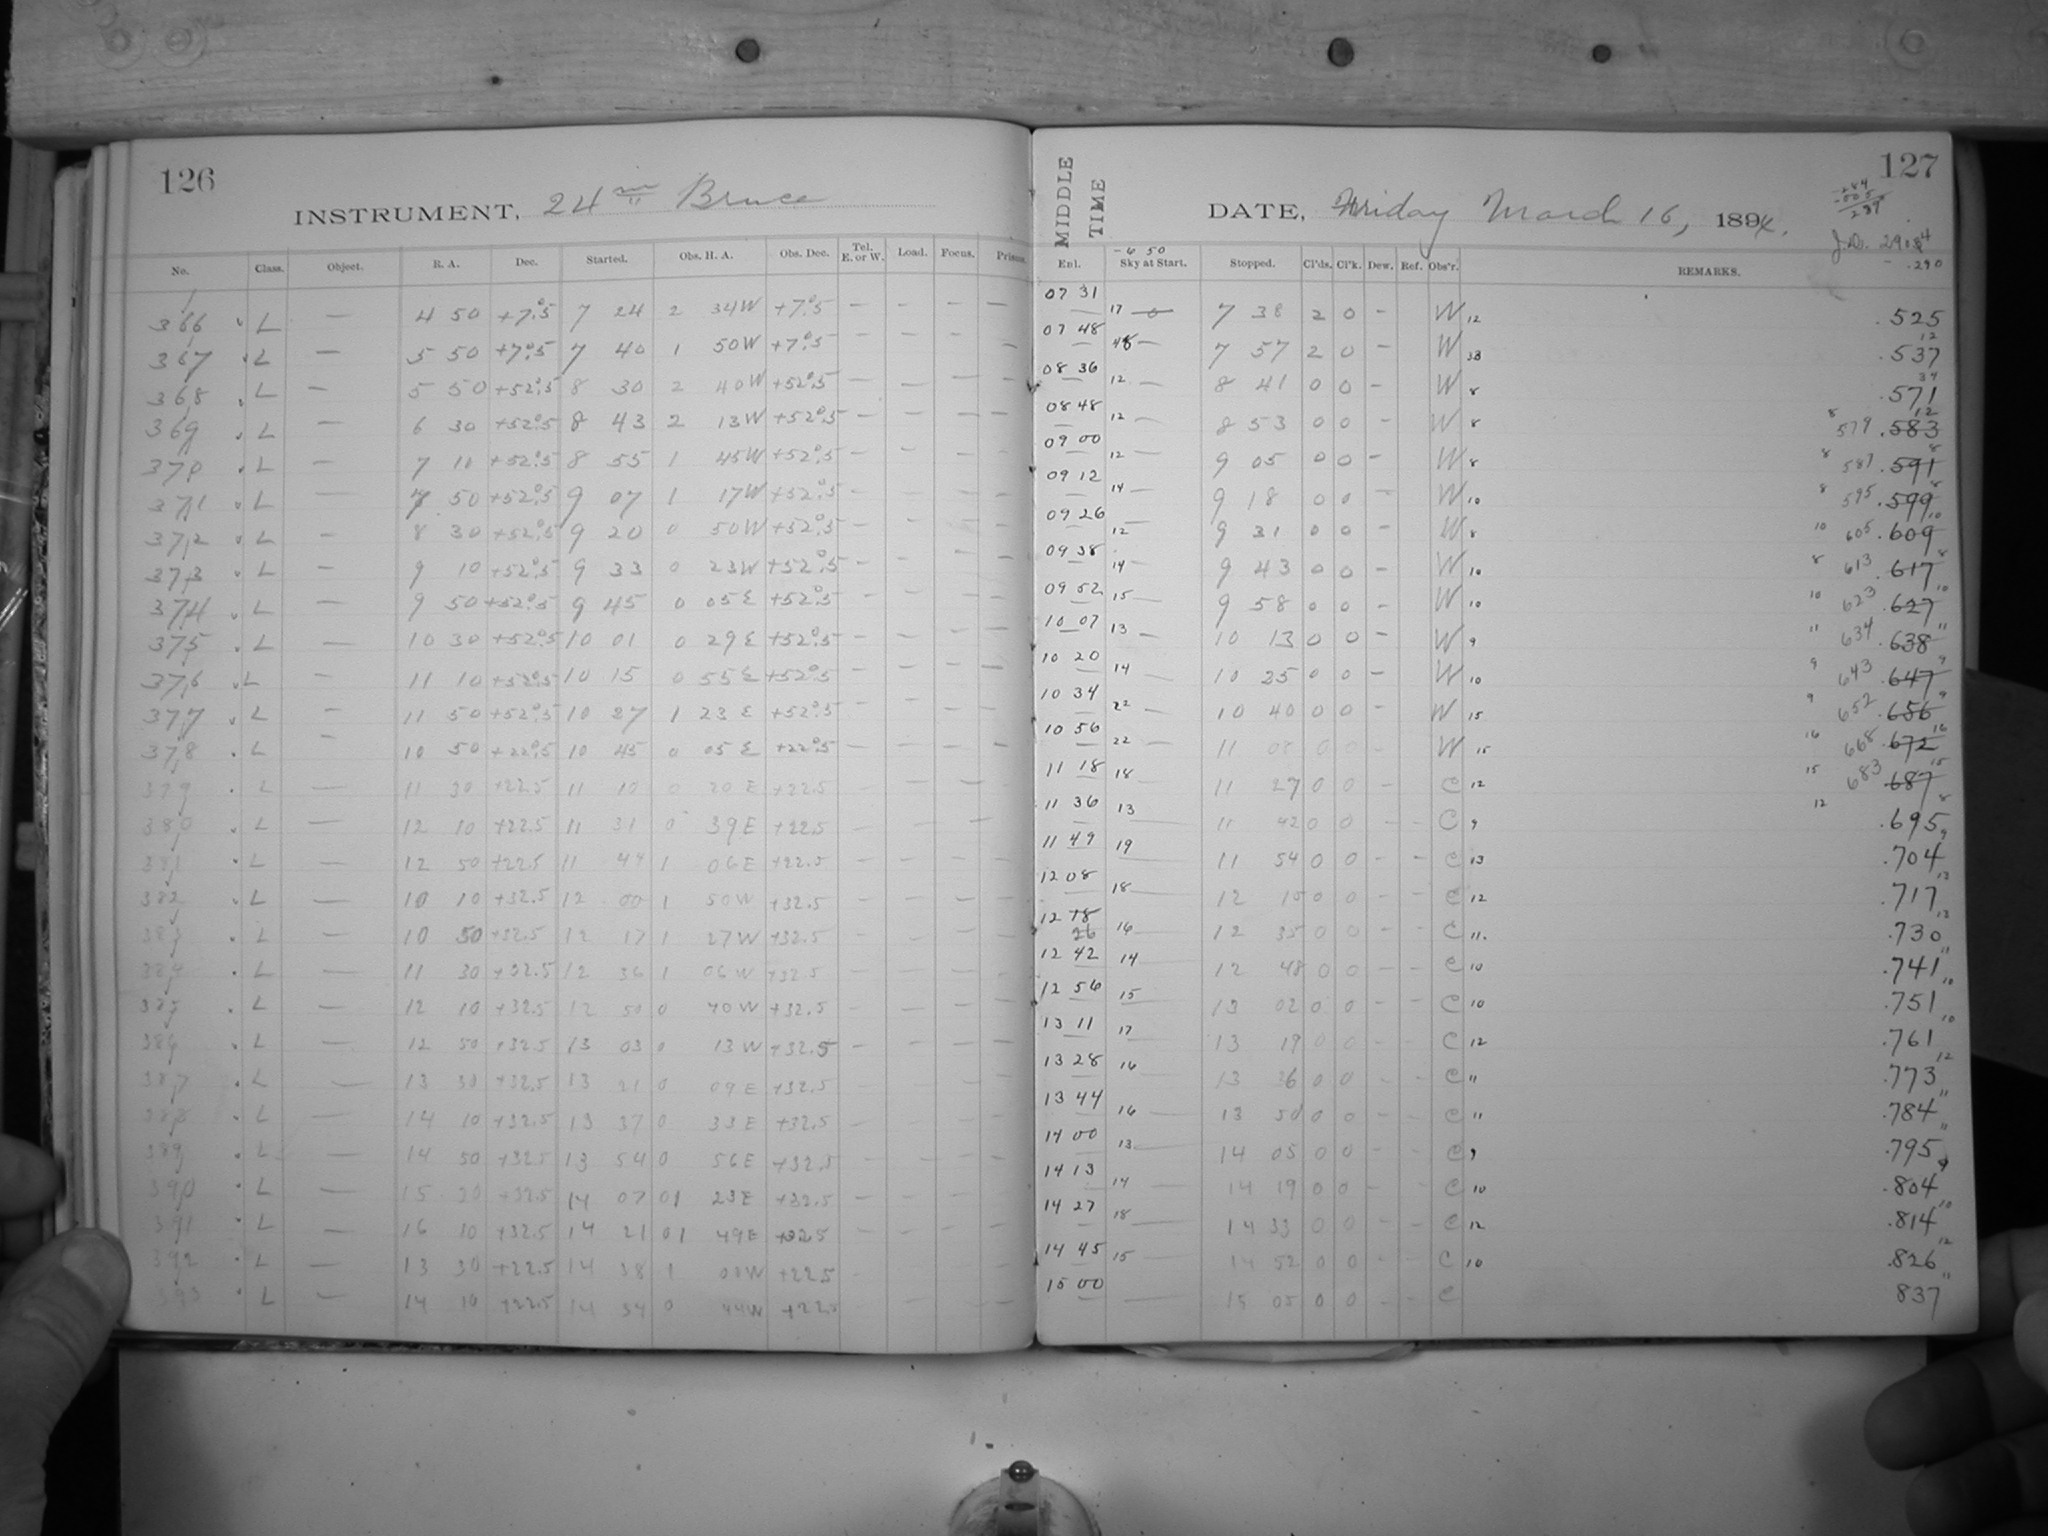 126
INSTRUMENT, 24 in Bruce
No. Class. Object. R. A. Dec. Started. Obs. H. A. Obs. Dec. Tel. E. or W. Load. Focus. Prism.
366 L — 4 50 +7°.5 7 24 2 34W +7°.5 — — — —
367 L — 5 50 +7°.5 7 40 1 50W +7°.5 —
368 L — 5 50 +52°.5 8 30 2 40W +52°.5 — — — —
369 L — 6 30 +52°.5 8 43 2 13W +52°.5 — — — —
370 L — 7 10 +52°.5 8 55 1 45W +52°.5 — — — —
371 L — 7 50 +52°.5 9 07 1 17W +52°.5 — — — —
372 L — 8 30 +52°.5 9 20 0 50W +52°.5 — — — —
373 L — 9 10 +52°.5 9 33 0 23W +52°.5 — — — —
374 L — 9 50 +52°.5 9 45 0 05E +52°.5 — — — —
375 L — 10 30 +52°.5 10 01 0 29E +52°.5 — — — —
376 L — 11 10 +52°.5 10 15 0 55E +52°.5 — — — —
377 L — 11 50 +52°.5 10 27 1 23E +52°.5 — —
378 L — 10 50 +22°.5 10 45 0 05E +22°.5 — — — —
379 L — 11 30 +22.5 11 10 0 20E +22.5 — — — —
380 L — 12 10 +22.5 11 31 0 39E +22.5 — — — —
381 L — 12 50 +22.5 11 44 1 06E +22.5 — — — —
382 L — 10 10 +32.5 12 00 1 50W +32.5 — — — —
383 L — 10 50 +32.5 12 17 1 27W +32.5 — — — —
384 L — 11 30 +32.5 12 36 1 06W +32.5 — — — —
385 L — 12 10 +32.5 12 50 0 40W +32.5 — — — —
386 L — 12 50 +32.5 13 03 0 13W +32.5 — — — —
387 L — 13 30 +32.5 13 21 0 09E +32.5 — — — —
388 L — 14 10 +32.5 13 37 0 33E +32.5 — — — —
389 L — 14 50 +32.5 13 54 0 56E +32.5 — — — —
390 L — 15 30 +32.5 14 07 01 23E +32.5 — — — —
391 L — 16 10 +32.5 14 21 01 49E +32.5 — — — —
392 L — 13 30 +22.5 14 38 1 W +22.5 —
393 L — 14 10 +22.5 14 54 0 44W +22.5 — — —
127
MIDDLE TIME
DATE, Friday March 16, 1894.
J.D. 290
.290
-6 50
Enl. Sky at Start. Stopped. Cl'ds. Cl'k. Dew. Ref. Obs'r. REMARKS.
07 31 17 0 7 38 2 0 — W 12 .525
07 48 48 — 7 57 2 0 — W 33 12 .537
08 36 12 — 8 41 0 0 — W 8 34 .571
08 48 12 — 8 53 0 0 — W 8 8 579 12 .583
09 00 12 — 9 05 0 0 — W 8 8 587 8 .591
09 12 14 — 9 18 0 0 — W 10 8 595 8 .599
09 26 12 — 9 31 0 0 — W 8 10 605 10 .609
09 38 14 — 9 43 0 0 — W 10 8 613 8 .617
09 52 15 — 9 58 0 0 — W 10 10 623 10 .627
10 07 13 — 10 13 0 0 — W 9 11 634 11 .638
10 20 14 — 10 25 0 0 — W 10 9 643 9 .647
10 34 22 — 10 40 0 0 — W 15 9 652 9 .656
10 56 22 — 11 0 0 — W 15 16 668 16 .672
11 18 18 — 11 27 0 0 — C 12 15 683 15 .687
11 36 13 — 11 42 0 0 — — C 9 12 8 .695
11 49 19 11 54 0 0 — — C 13 9 .704
12 08 18 — 12 15 0 0 — — C 12 13 .717
12 18 26 16 — 12 35 0 0 — — C 11. 13 .730
12 42 14 — 12 48 0 0 — — C 10 11 .741
12 56 15 — 13 02 0 0 — — C 10 10 .751
13 11 17 — 13 19 0 0 — — C 12 10 .761
13 28 16 — 13 36 0 0 — — C 11 12 .773
13 44 16 — 13 50 0 0 — — C 11 11 .784
14 00 13 — 14 05 0 0 — — C 9 11 .795
14 13 14 — 14 19 0 0 — — C 10 9 .804
14 27 18 — 14 33 0 0 — — C 12 10 .814
14 45 15 — 14 52 0 0 — — C 10 12 .826
15 00 — 15 05 0 0 — — C 11 837